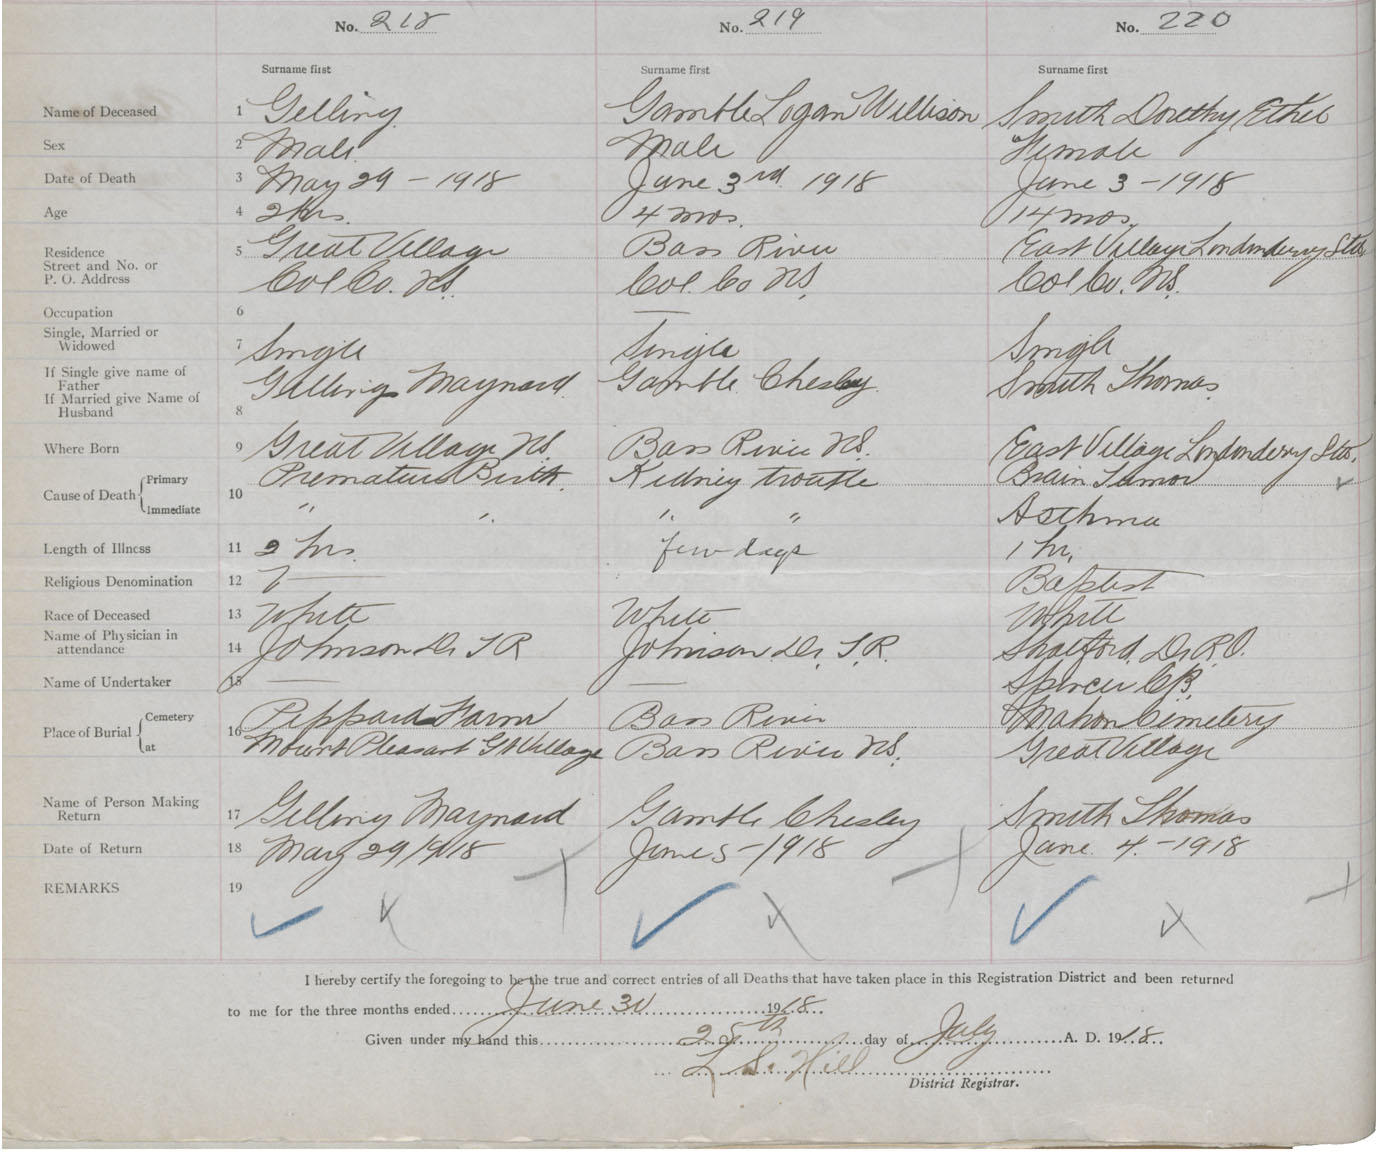 No. 218 No. 219 No. 220
Surname first Surname first Surname first
Name of Deceased 1 Gelling Gamble Logan Willison Smith Dorothy Ethel
Sex 2 Male Male Female
Date of Death 3 May 29 - 1918 June 3rd 1918 June 3 - 1918
Age 4 2 hrs. 4 mos. 14 mos.
Residence 5 Great Village Bass River East Village Londonderry Sta.
Street and No. or
P. O. Address Col. Co. N.S. Col. Co N.S. Col Co. N.S.
Occupation 6 —
Single, Married or
Widowed 7 Single Single Single
If Single give name of
Father Gelling Maynard Gamble Chesley Smith Thomas
If Married give Name of
Husband 8
Where Born 9 Great Village N.S. Bass River N.S. East Village Londonderry Sta.
Cause of Death Primary 10 Premature Birth Kidney trouble Brain Tumor
Immediate " " " " Asthma
Length of Illness 11 2 hrs. few days 1 hr.
Religious Denomination 12 — Baptist
Race of Deceased 13 White White White
Name of Physician in
attendance 14 Johnson Dr T R Johnson Dr. T.R. Shatford, Dr. R.O.
Name of Undertaker 15 — — Spencer C.B.
Place of Burial Cemetery 16 Peppard Farm Bass River Mahon Cemetery
at Mount Pleasant Gt Village Bass River N.S. Great Village
Name of Person Making
Return 17 Gelling Maynard Gamble Chesley Smith Thomas
Date of Return 18 May 29/1918 June 5-1918 June 4.-1918
REMARKS 19
I hereby certify the foregoing to be the true and correct entries of all Deaths that have taken place in this Registration District and been returned
to me for the three months ended June 30 1918
Given under my hand this 25th day of July A. D. 1918.
L. S. Hill
District Registrar.